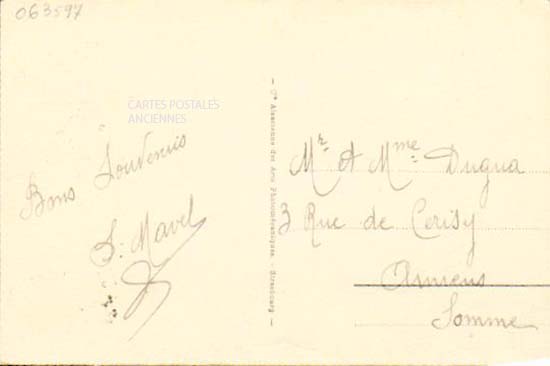 063597
CARTES POSTALES
ANCIENNES
Bons Souvenirs
S. Mavel
— Cie Alsacienne des Arts Photomécaniques. - Strasbourg —
Mr & Mme Dugua
3 Rue de Cerisy
Amiens
Somme